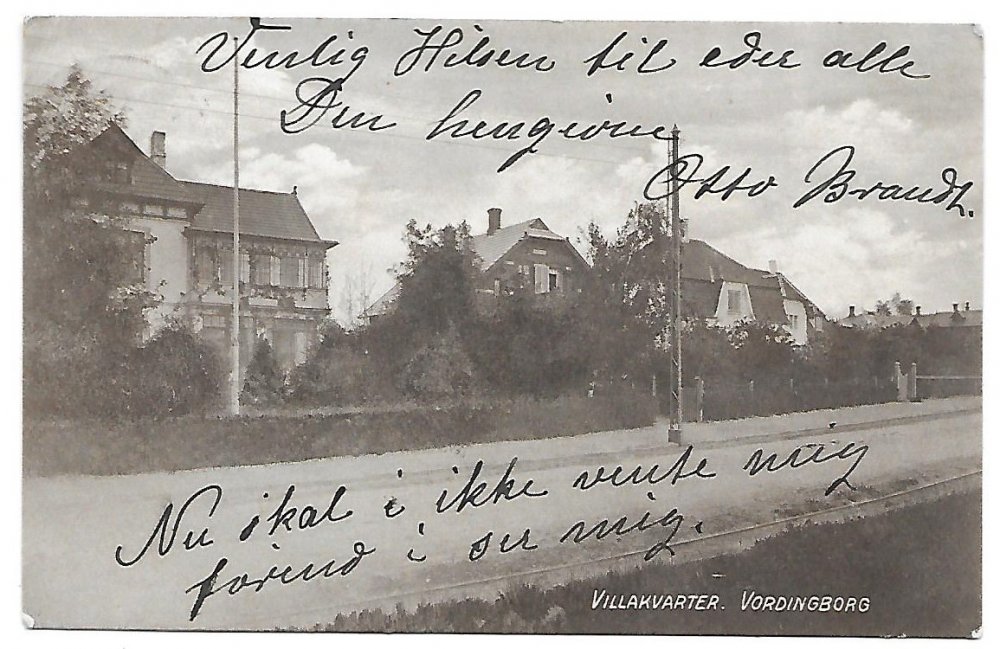 Venlig Hilsen til eder alle
Den hengivne
Otto Brandt.
Nu skal i ikke vente mig
førend i ser mig.
VILLAKVARTER. VORDINGBORG